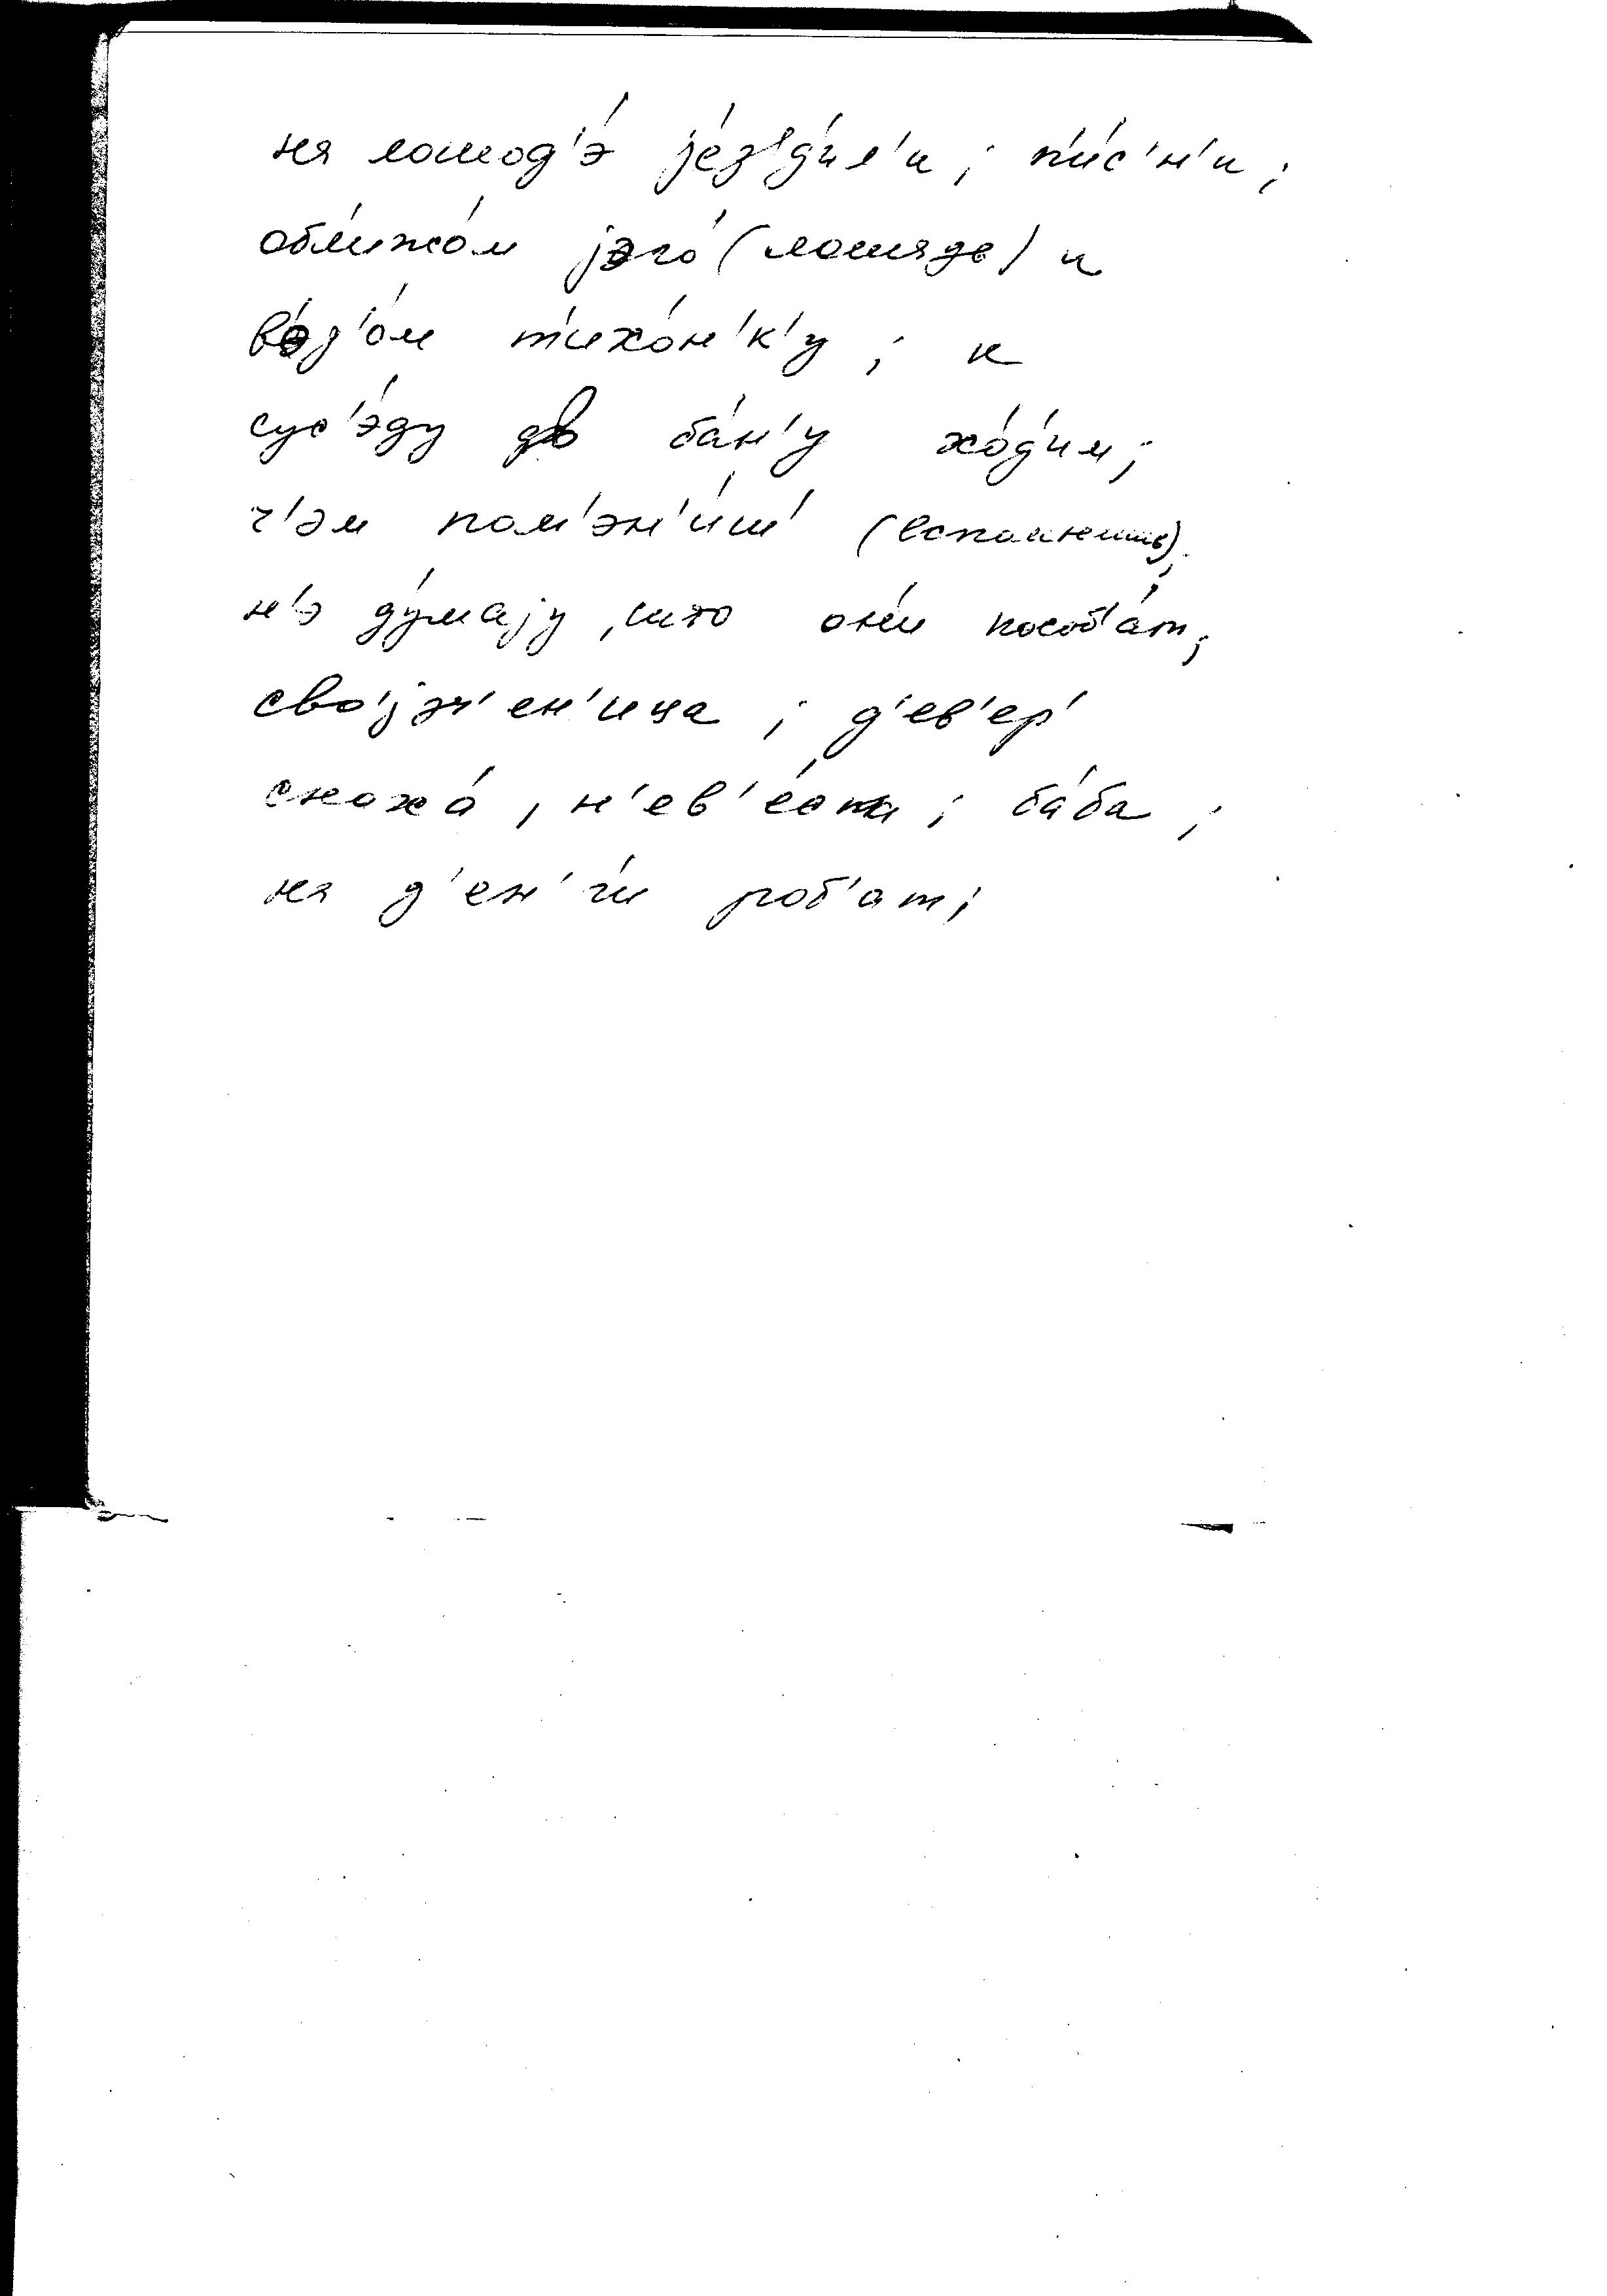 на лошод'э́ jе́з'д'ил'и; п'и́с'н'и;
обм'ижо́м jэго́ (лошадь) и
в'эд'о́м т'ихо́н'к'у; к
сус'э́ду в ба́н'у хо́д'им;
ч'эм пом'эн'и́ш' (вспомнишь);
н'э ду́маjу, што они́ пособ'а́т;
сво'jэч'ен'ица; д'ев'ер'
сноха́, н'ев'е́ста; ба́ба;
на д'ен'ги роб'ат;